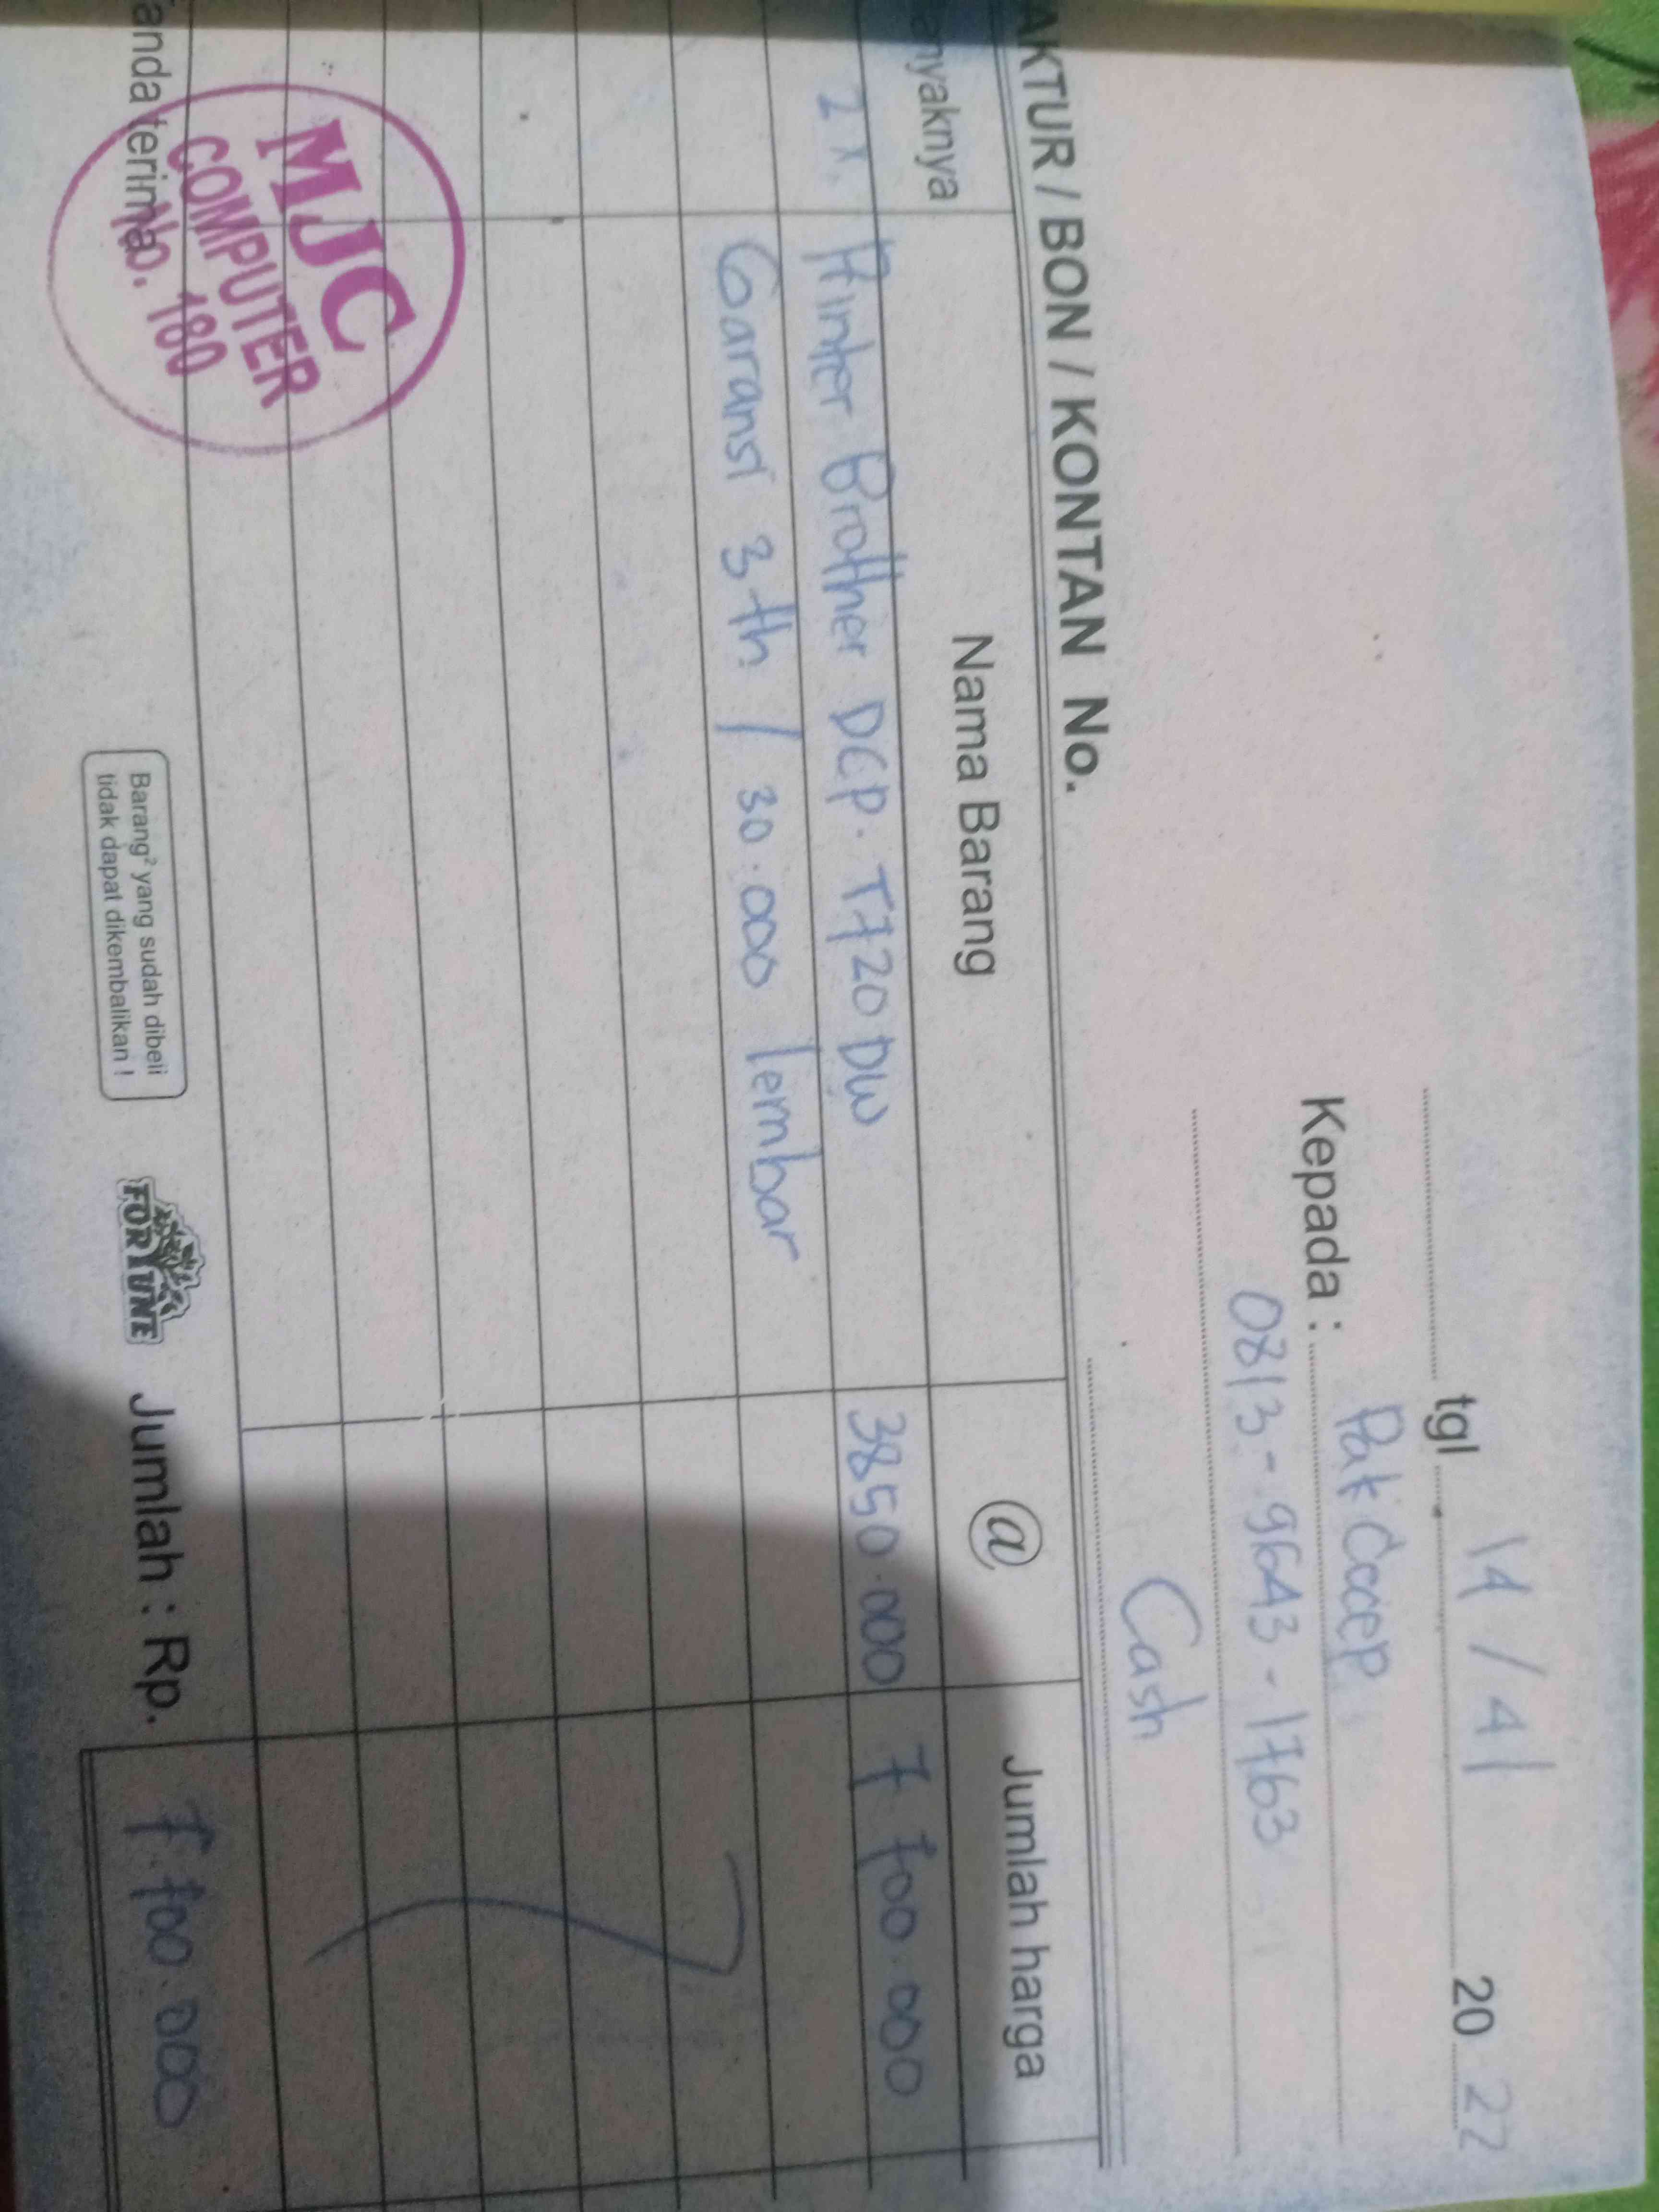 tgl 14 / 4 2022
Kepada : Pak Cecep
0813-9643-1763
Cash
AKTUR / BON / KONTAN No.
nyaknya Nama Barang @ Jumlah harga
2 x Printer Brother DCP. T720DW 3850.000 7 700.000
Garansi 3 th / 30.000 lembar
anda terima,
MJC
COMPUTER
No. 180
Barang² yang sudah dibeli
tidak dapat dikembalikan !
FORTUNE
Jumlah : Rp. 7.700.000